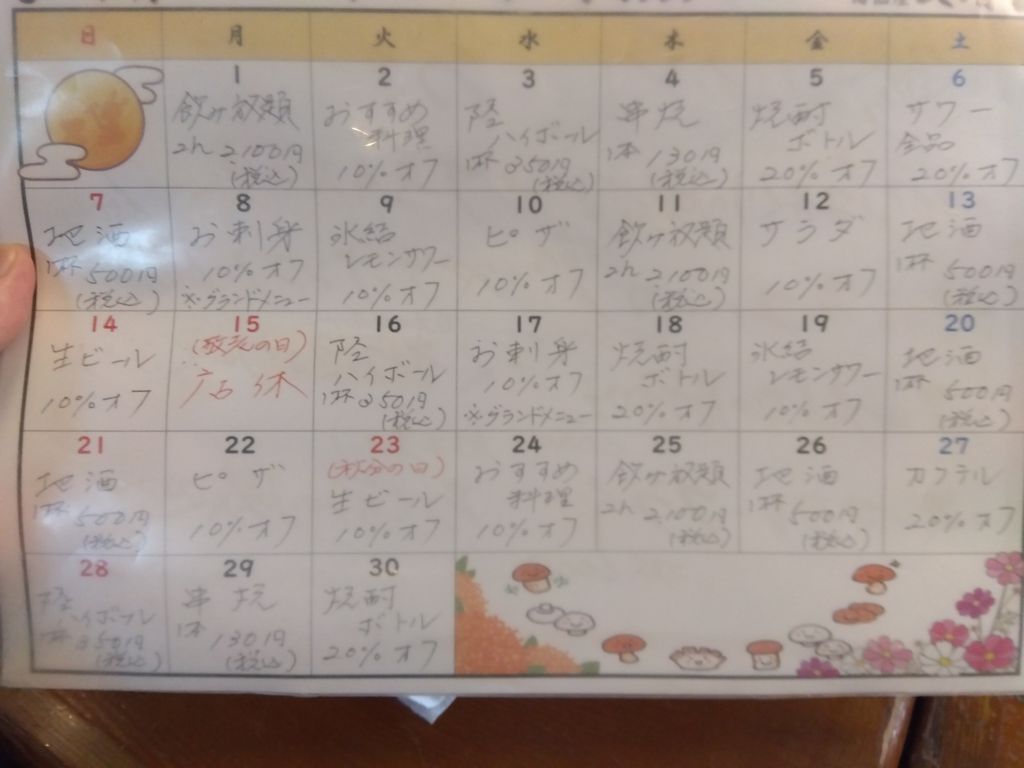 日 月 火 水 木 金 土
1 2 3 4 5 6
飲み放題 おすすめ 陸 串焼 焼酎 サワー
料理 ハイボール ボトル 全品
2h 2,100円 10%オフ 1杯 350円 1本 130円 20%オフ 20%オフ
(税込) (税込) (税込)
7 8 9 10 11 12 13
地酒 お刺身 氷結 ピザ 飲み放題 サラダ 地酒
レモンサワー
1杯 500円 10%オフ 10%オフ 10%オフ 2h 2,100円 10%オフ 1杯 500円
(税込) ※グランドメニュー (税込) (税込)
14 15 16 17 18 19 20
生ビール (敬老の日) 陸 お刺身 焼酎 氷結 地酒
店休 ハイボール ボトル レモンサワー
10%オフ 1杯 350円 10%オフ 20%オフ 10%オフ 1杯 500円
(税込) ※グランドメニュー (税込)
21 22 23 24 25 26 27
地酒 ピザ (秋分の日) おすすめ 飲み放題 地酒 カクテル
生ビール 料理
1杯 500円 10%オフ 10%オフ 10%オフ 2h 2,100円 1杯 500円 20%オフ
(税込) (税込) (税込)
28 29 30
陸 串焼 焼酎
ハイボール ボトル
1杯 350円 1本 130円 20%オフ
(税込) (税込)